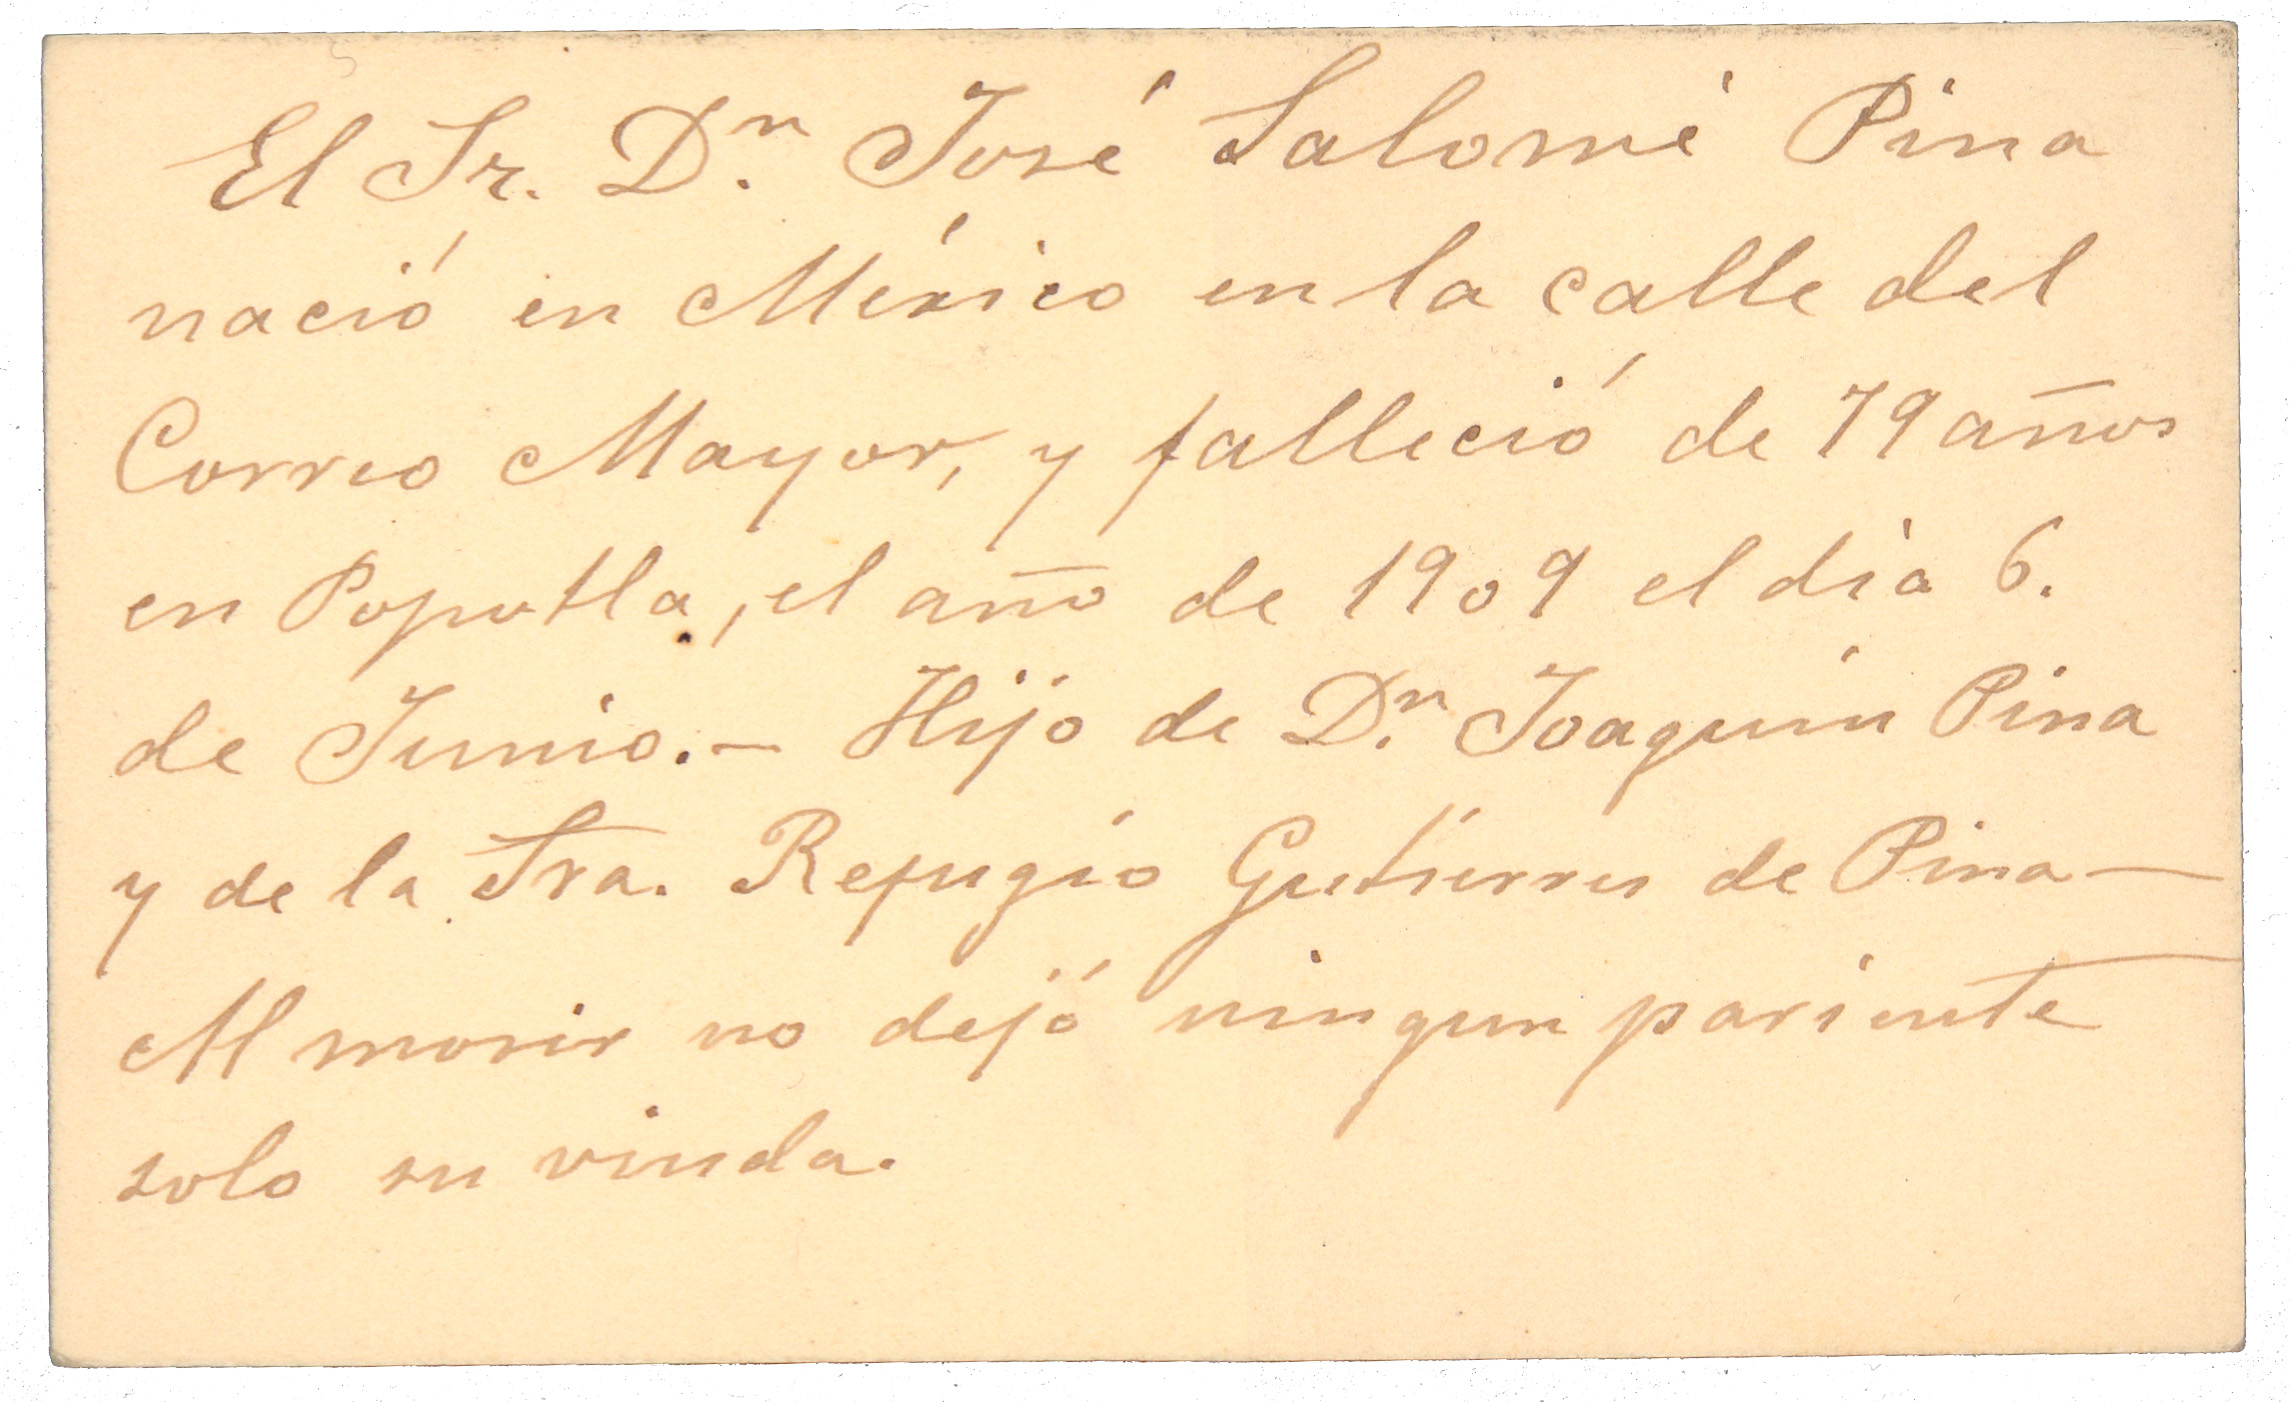 El Sr. Dⁿ. José Salomé Pina
nació en México en la calle del
Correo Mayor, y falleció de 79 años
en Popotla, el año de 1909 el dia 6.
de Junio.— Hijo de Dⁿ. Joaquín Pina
y de la Sra. Refugio Gutiérres de Pina—
Al morir no dejó ningun pariente
solo su viuda.